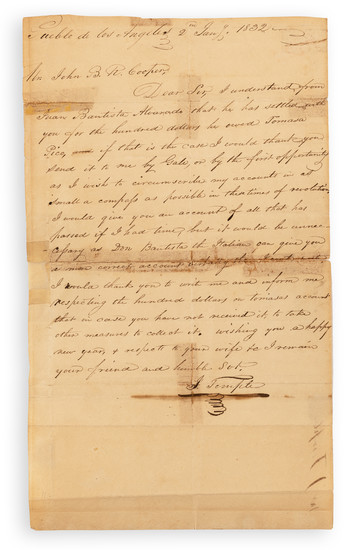 Pueblo de los Angeles 2n Jany. 1832
Mr. John B. R. Cooper,
Dear Sir, I understand from
Juan Bautista Alvarado that he has settled with
you for the hundred dollars he owed Tomasa
Pico, if that is the case I would thank you
send it to me by Gale, or by the first opportunity
as I wish to circumscribe my accounts in as
small a compass as possible in these times of revolution
I would give you an account of all that has
passed if I had time, but it would be unne-
cessary as Don Bautista the Italian can give you
a more correct account of things than I can
I would thank you to write me and inform me
respecting the hundred dollars on tomasas account
that in case you have not received it to take
other measures to collect it. wishing you a happy
new year, & respects to your wife &c I remain
your friend and humble Svt.
J. Temple